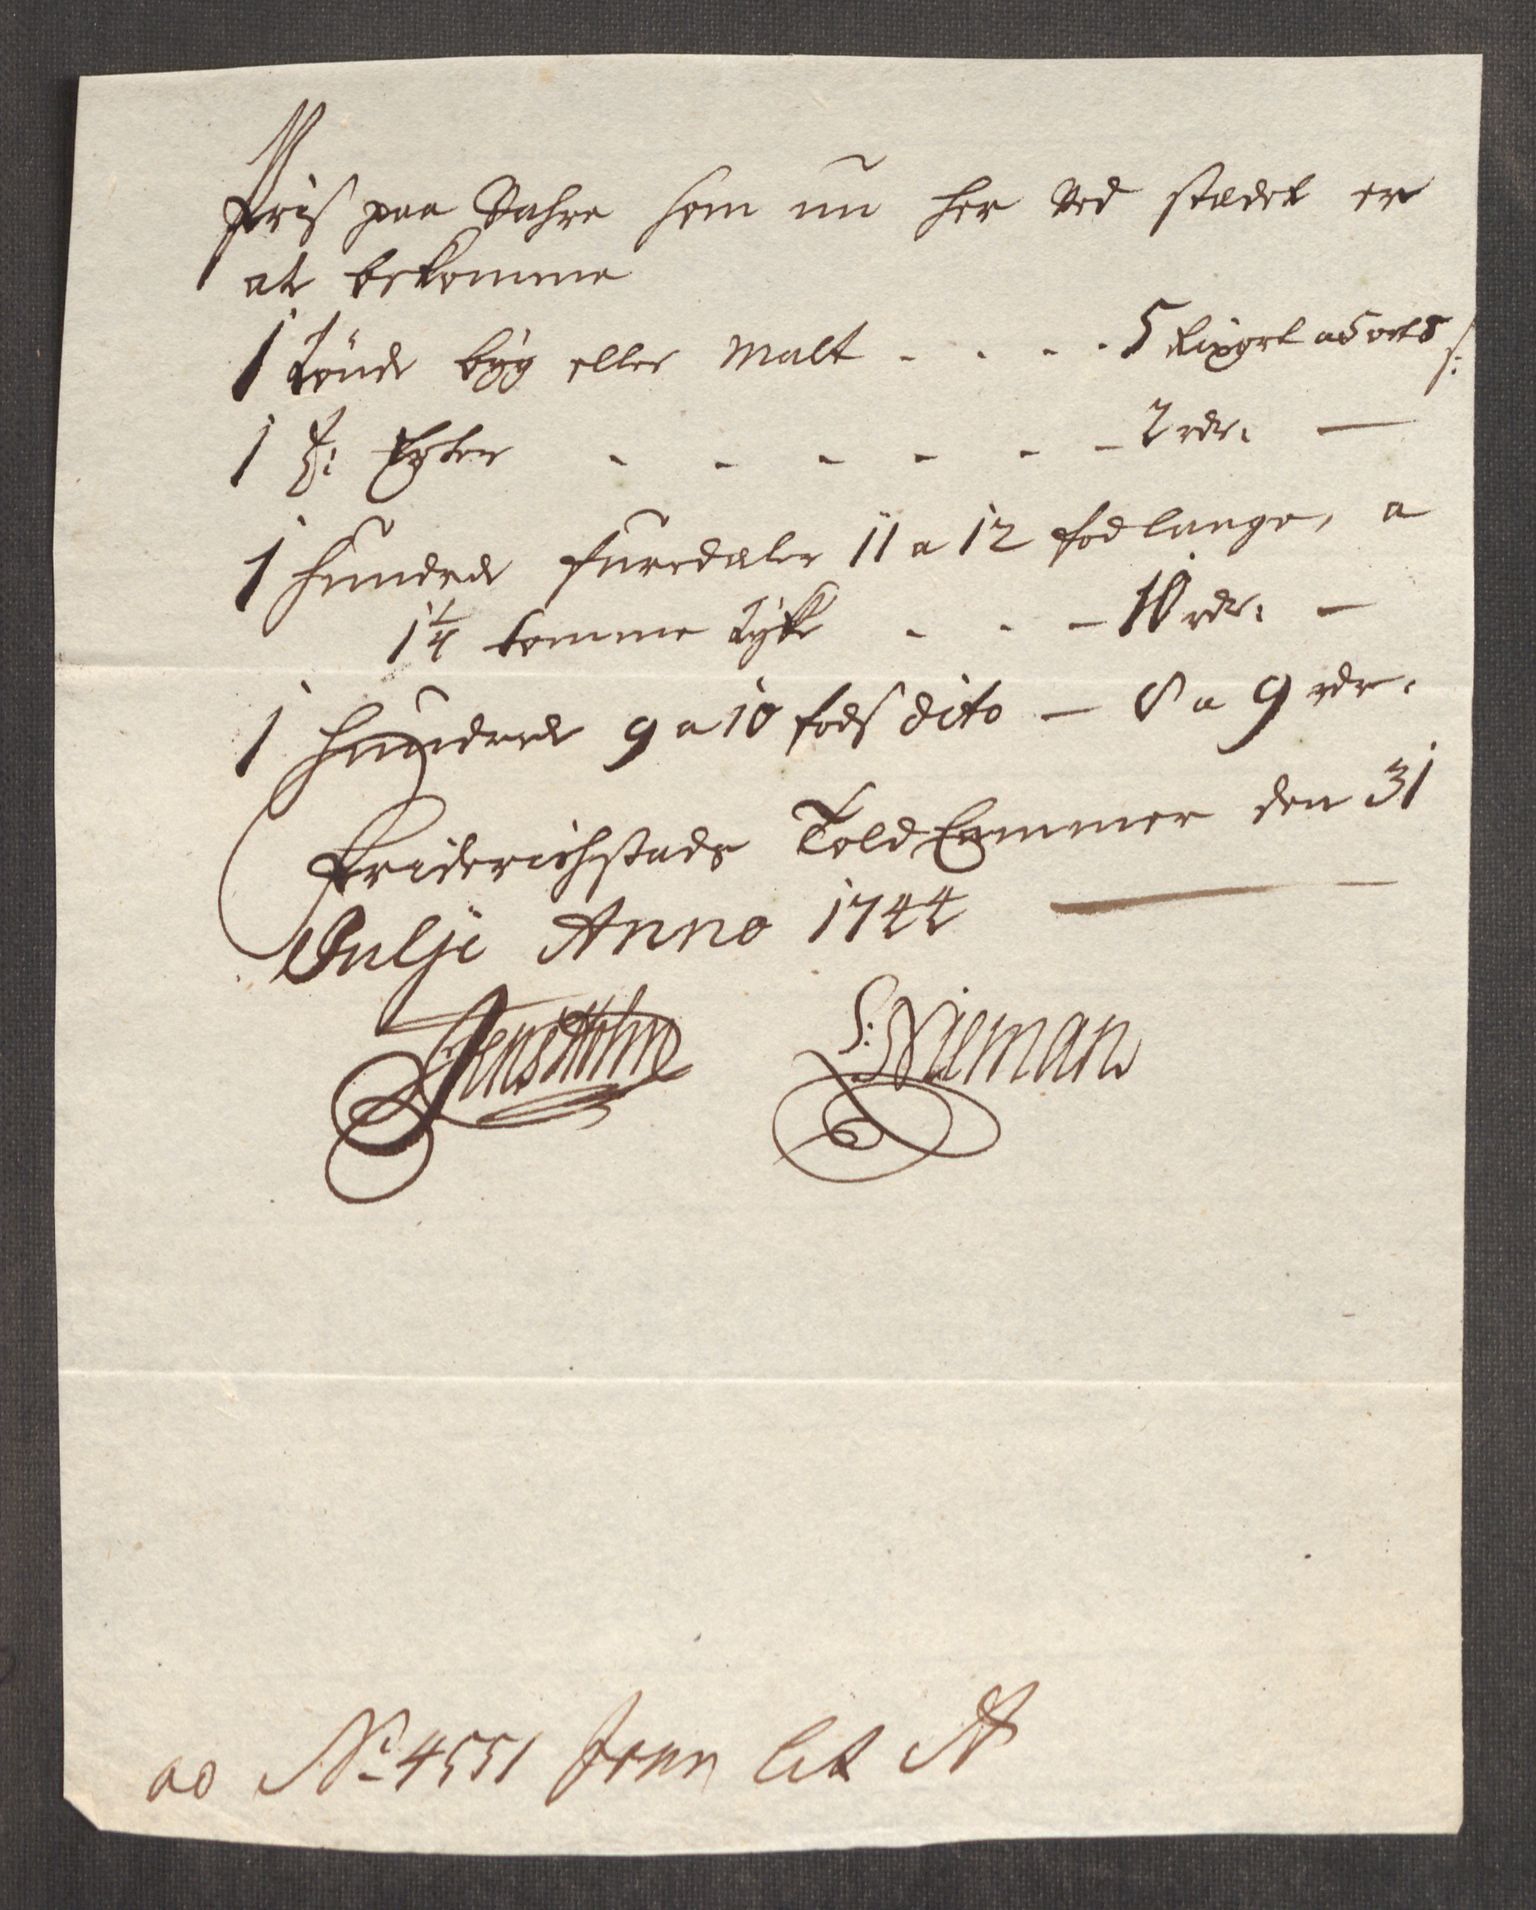 Pris paa Vahre som nu her ved stædet er
at bekomme
1 Tönde byg eller Malt - - - - 5 a 5 ort 8 s:
1 t: Erter - - - - - - 2 rdr. —
1 hundrede furredæler 11 a 12 fod lange, a
1 1/4 tomme tyk - - - 10 rdr: —
1 hundrede 9 a 10 fods dito — 8 a 9 rdr.
Friderichstads Told Cammer den 31
Julji Anno 1744
Jens Holm S: Nieman
ad No 4551 lit A